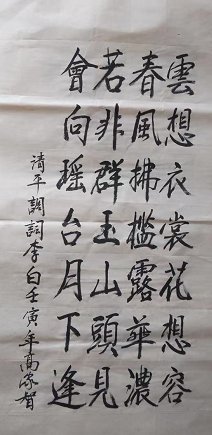 雲想衣裳花想容
春風拂檻露華濃
若非群玉山頭見
會向瑶台月下逢
清平調詞李白壬寅年高家智